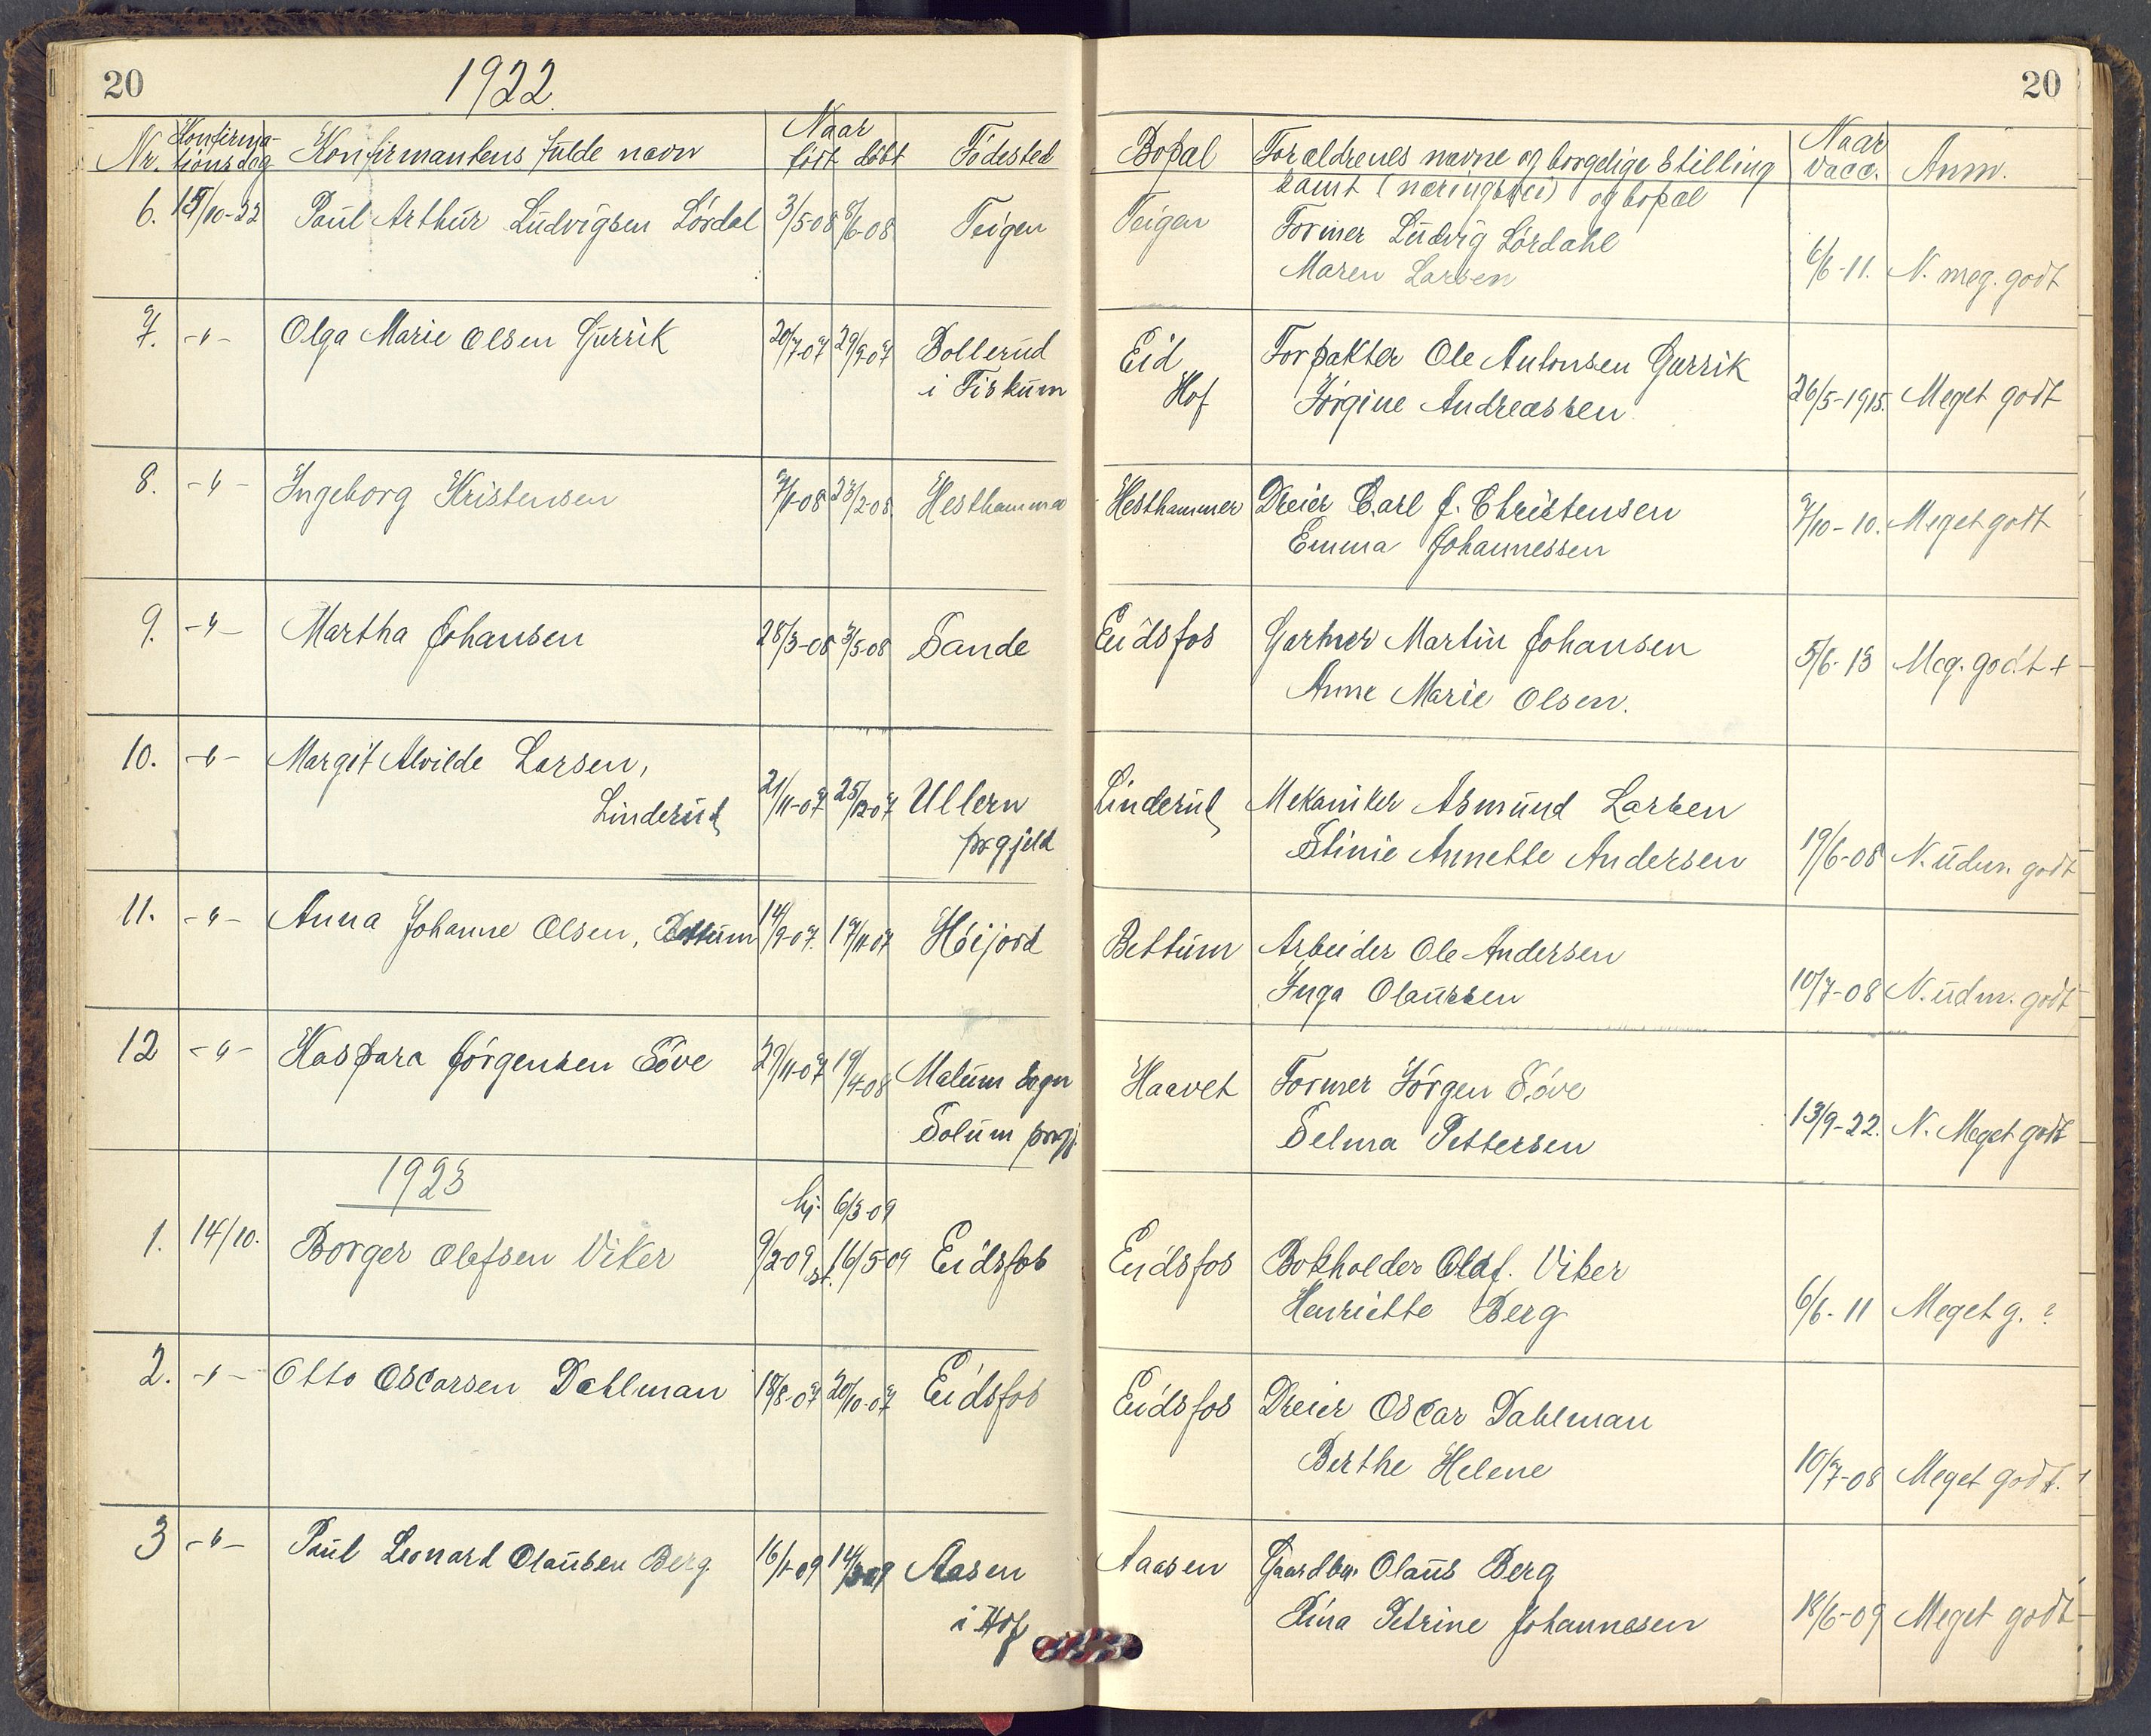 20
1922
Nr.
Konfirma-
tionsdag
Konfirmantens fulde navn
Naar
født døbt
Fødested
6. 15/10-22 Paul Arthur Ludvigsen Lørdal 3/5-08 8/6-08 Teigen
7. -"- Olga Marie Olsen Gurrik 20/7-07 29/9-07 Bollerud
i Fiskum
8. -"- Ingeborg Kristensen 7/1-08 23/2-08 Hesthammer
9. -"- Martha Johansen 28/3-08 3/5-08 Sande
10. -"- Margit Alvilde Larsen,
Linderud 21/11-07 25/12-07 Ullern
prgjeld
11. -"- Anna Johanne Olsen, Bettum 14/9-07 17/11-07 Høijord
12 -"- Kaspara Jørgensen Söve 29/11-07 19/4-08 Melum sogn
Solum prgj.
1923
hj. 6/3-09
1. 14/10. Borger Olafsen Viker 9/2-09 st. 16/5-09 Eidsfos
2. -"- Otto Oscarsen Dahlman 18/8-07 20/10-07 Eidsfos
3 -"- Paul Leonard Olausen Berg. 16/1-09 14/3-09 Aasen
i Hof
20
Bopæl
Forældrenes navne og borgelige Stilling
samt (næringsvei) og bopæl
Naar
vacc.
Anm.
Teigen Former Ludvig Lørdahl
Maren Larsen 6/6-11. N. meg. godt
Eid Forpakter Ole Antonsen Gurrik
Hof Jørgine Andreassen 26/5-1915. Meget godt
Hesthammer Dreier Carl J. Christensen
Emma Johannessen 7/10-10. Meget godt
Eidsfos Gartner Martin Johansen
Anne Marie Olsen. 5/6-13 Meg. godt +
Linderud Mekaniker Asmund Larsen
Stinie Annette Andersen 19/6-08 N. udm. godt
Bettum Arbeider Ole Andersen
Inga Olaussen 10/7-08 N. udm. godt
Haavet Former Jørgen Söve
Selma Pettersen 13/9-22. N. Meget godt
Eidsfos Bokholder Olaf. Viker
Henriette Berg 6/6-11 Meget g. ?
Eidsfos Dreier Oscar Dahlman
Berthe Helene 10/7-08 Meget godt.
Aaasen Gaardbr. Olaus Berg
Lina Petrine Johannesen 18/6-09 Meget godt